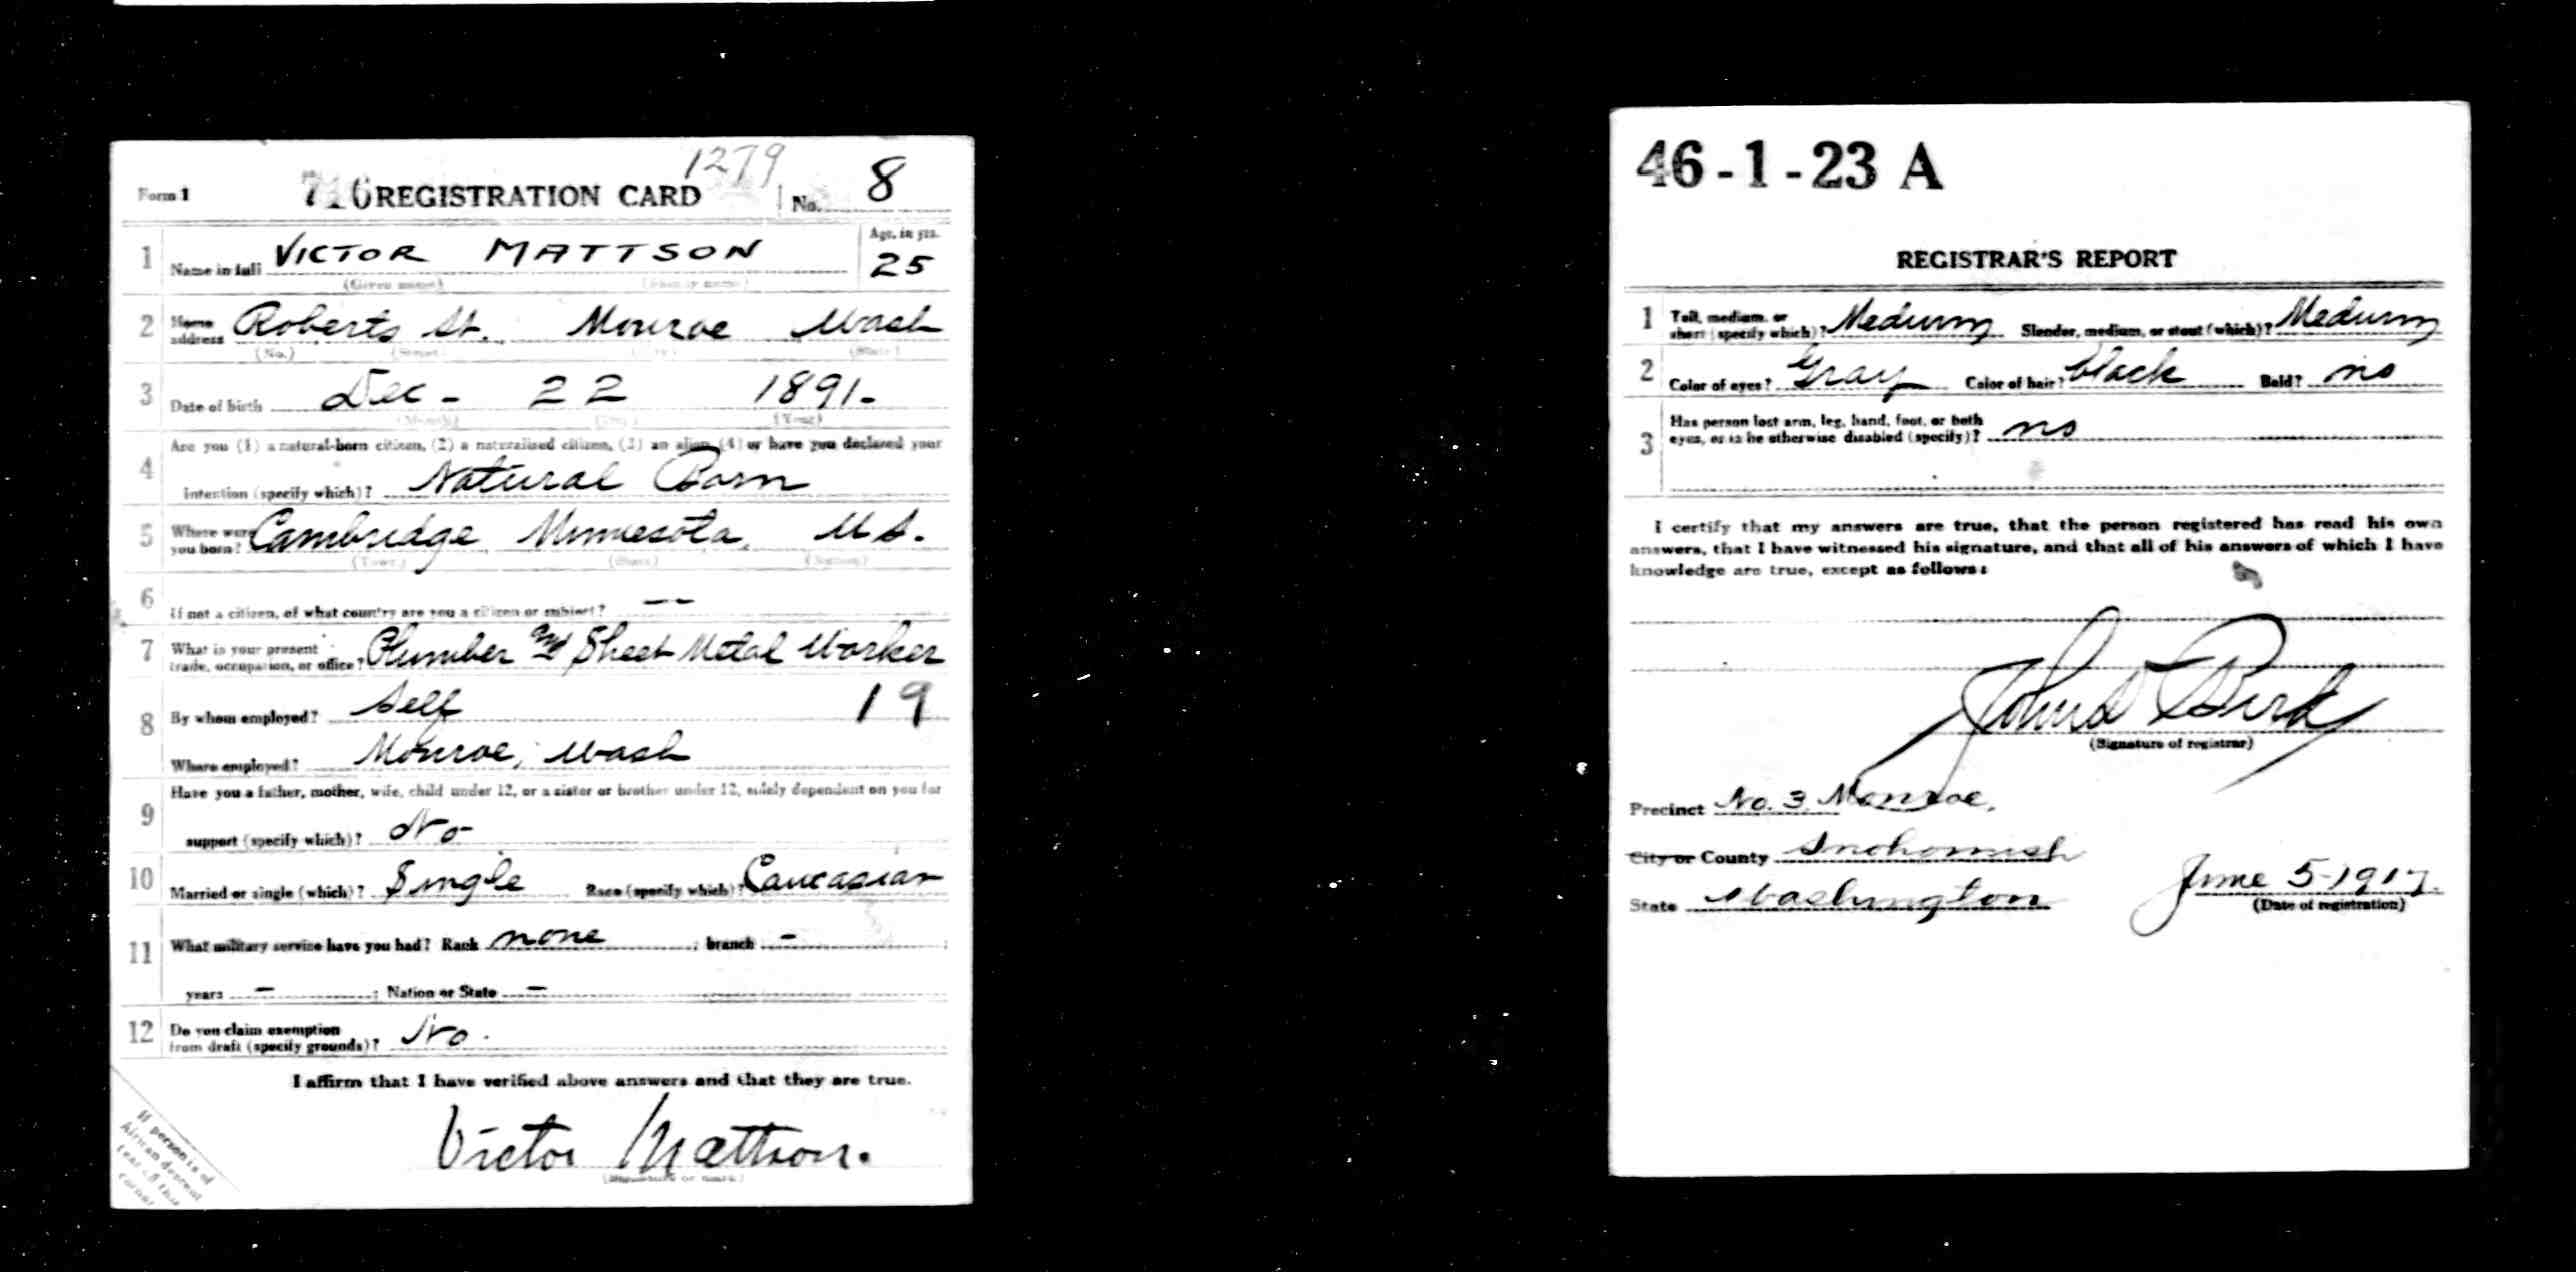 1279
Form 1 716 REGISTRATION CARD No. 8
1 Name in full VICTOR MATTSON Age, in yrs. 25
(Given name) (Family name)
2 Home address Roberts St. Monroe Wash
(No.) (Street) (City) (State)
3 Date of birth Dec - 22 1891.
(Month) (Day) (Year)
4 Are you (1) a natural-born citizen, (2) a naturalized citizen, (3) an alien, (4) or have you declared your
intention (specify which)? Natural Born
5 Where were you born? Cambridge Minnesota, U S.
(Town) (State) (Nation)
6 If not a citizen, of what country are you a citizen or subject? --
7 What is your present trade, occupation, or office? Plumber and Sheet Metal Worker
8 By whom employed? Self 19
Where employed? Monroe, Wash
9 Have you a father, mother, wife, child under 12, or a sister or brother under 12, solely dependent on you for
support (specify which)? No
10 Married or single (which)? Single Race (specify which)? Caucasian
11 What military service have you had? Rank none ; branch - ;
years - ; Nation or State -
12 Do you claim exemption from draft (specify grounds)? No.
I affirm that I have verified above answers and that they are true.
Victor Mattson.
(Signature or mark)
If person is of
African descent
tear off this
corner
46-1-23 A
REGISTRAR'S REPORT
1 Tall, medium, or short (specify which)? Medium Slender, medium, or stout (which)? Medium
2 Color of eyes? Gray Color of hair? Black Bald? no
3 Has person lost arm, leg, hand, foot, or both
eyes, or is he otherwise disabled (specify)? no
I certify that my answers are true, that the person registered has read his own
answers, that I have witnessed his signature, and that all of his answers of which I have
knowledge are true, except as follows:
(Signature of registrar)
Precinct No. 3 Monroe.
City or County Snohomish
State Washington June 5-1917.
(Date of registration)